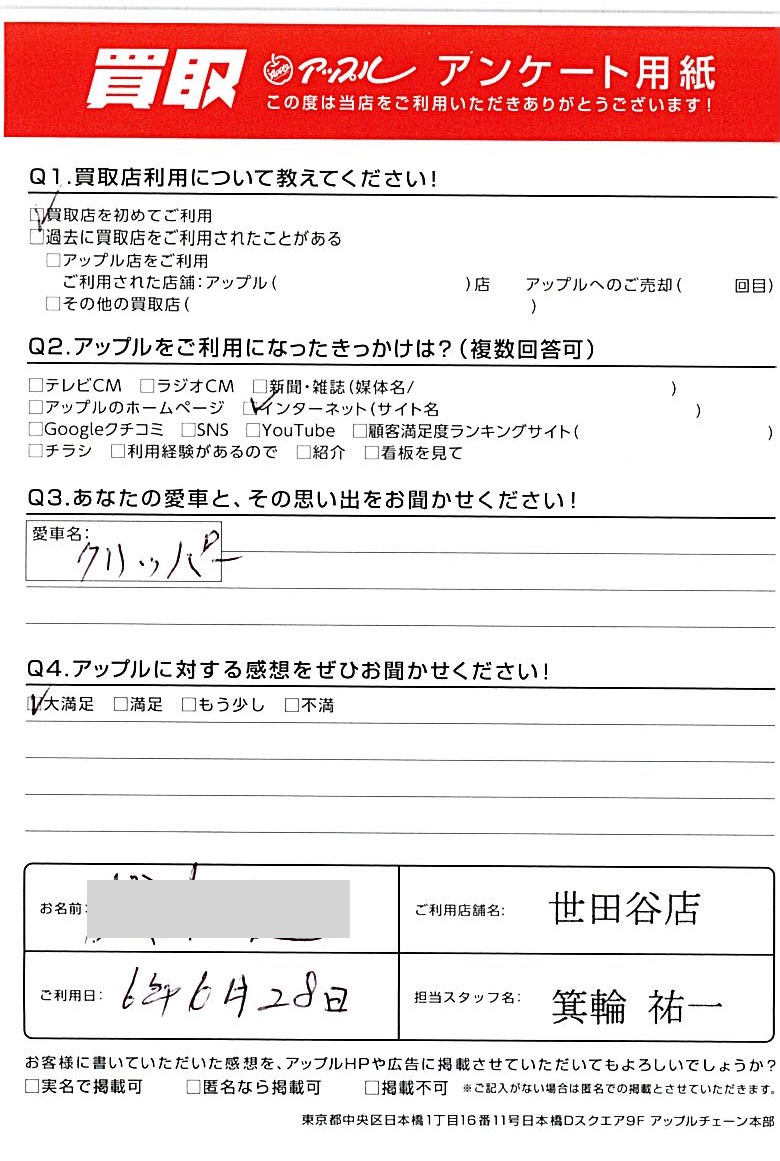 買取 アップル アンケート用紙
この度は当店をご利用いただきありがとうございます!
Q1.買取店利用について教えてください!
☑買取店を初めてご利用
□過去に買取店をご利用されたことがある
□アップル店をご利用
ご利用された店舗:アップル( )店 アップルへのご売却( 回目)
□その他の買取店( )
Q2.アップルをご利用になったきっかけは?(複数回答可)
□テレビCM □ラジオCM □新聞・雑誌(媒体名/ )
□アップルのホームページ ☑インターネット(サイト名 )
□Googleクチコミ □SNS □YouTube □顧客満足度ランキングサイト( )
□チラシ □利用経験があるので □紹介 □看板を見て
Q3.あなたの愛車と、その思い出をお聞かせください!
愛車名:
クリッパー
Q4.アップルに対する感想をぜひお聞かせください!
☑大満足 □満足 □もう少し □不満
お名前: ご利用店舗名: 世田谷店
ご利用日: 6年6月28日 担当スタッフ名: 箕輪 祐一
お客様に書いていただいた感想を、アップルHPや広告に掲載させていただいてもよろしいでしょうか?
□実名で掲載可 □匿名なら掲載可 □掲載不可 ※ご記入がない場合は匿名での掲載とさせていただきます。
東京都中央区日本橋1丁目16番11号日本橋Dスクエア9F アップルチェーン本部